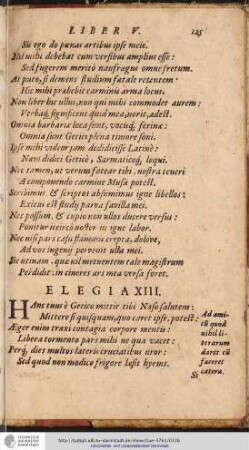 LIBER V. 125
Sic ego do pœnas artibus ipse meis.
Nil mihi debebat cum versibus amplius esse:
Sed fugerem merito naufragus omne fretum.
At puto, si demens studium fatale retentem
Hic mihi præbebit carminis arma locus.
Non liber hic ullus, non qui mihi commodet aurem:
Verbaq́, significent quid mea, norit, adest.
Omnia barbariæ loca sunt, vocisq́, ferinæ:
Omnia sunt Getici plena timore soni.
Ipse mihi videor jam dedidicisse Latinè:
Nam didici Geticè, Sarmaticeq́, loqui.
Nec tamen, ut verum fatear tibi, nostra teneri
A componendo carmine Musa potest.
Scribimus & scriptos absumimus igne libellos:
Exitus est studii parva favilla mei.
Nec possum, & cupio non ullos ducere versus:
Ponitur iccirco noster in igne labor.
Nec nisi pars casu flammis erepta, dolóve,
Ad vos ingenii pervenit ulla mei.
Sic utinam, quæ nil metuentem tale magistrum
Perdidit, in cineres ars mea versa foret.
ELEGIA XIII.
HAnc tuus è Getico mittit tibi Naso salutem:
Mittere si quisquam, quo caret ipse, potest:
Æger enim traxi contagia corpore mentis:
Libera tormento pars mihi ne qua vacet:
Perq́, dies multos lateris cruciatibus uror:
Sed quod non modico frigore læsit hyems.
Ad ami-
cũ quod
nihil li-
terarum
daret cũ
faceret
catera.
Si